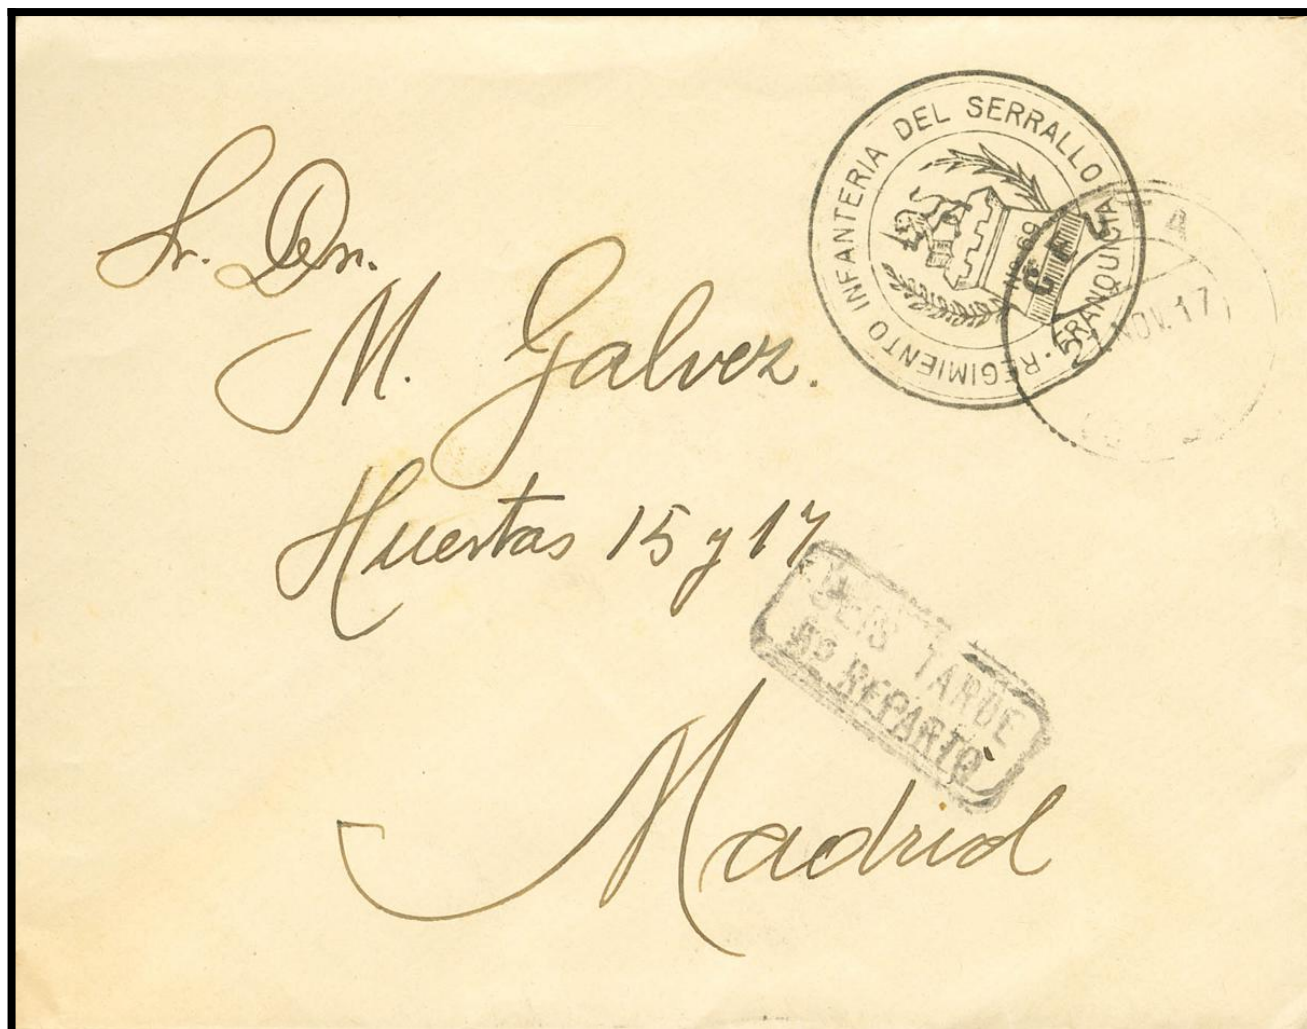 Sr. Dn.
M. Galvez.
Huertas 15 y 17
Madrid
REGIMIENTO INFANTERIA DEL SERRALLO
· FRANQUICIA ·
Nº 69
NOV. 17
SEIS TARDE
5º REPARTO